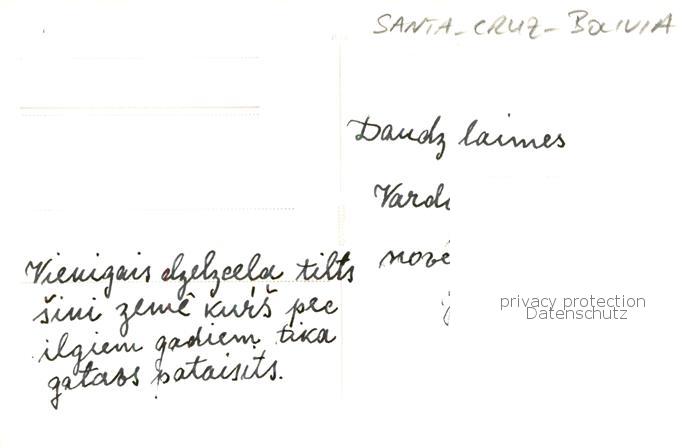 SANTA-CRUZ-BOLIVIA
Daudz laimes
Vard
nově
Vienigais dzelzcela tilts
šini zemē kuŕš pec
ilgiem gadiem tika
gatavs pataisits.
privacy protection
Datenschutz